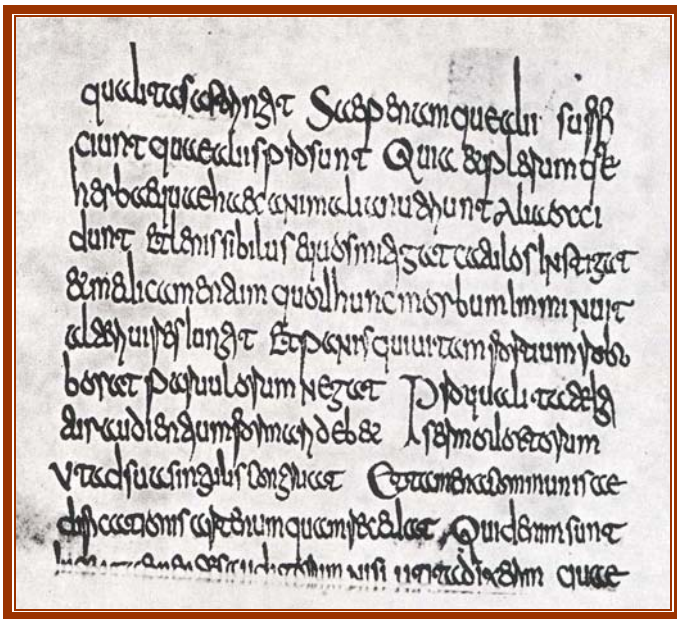 qualitas astringat Saepe namque alii suffi
ciunt quae aliis prosunt Quia et plerumque
herbae quae haec animalia nutriunt alia occi
dunt Et lenis sibilus equos mitigat catulos instigat
et medicamentum quod hunc morbum imminuit
alteri vires iungit Et panis qui vitam fortium robo
borat parvulorum necat Pro qualitate ig
itur audientium formari debet sermo doctorum
ut ad sua singulis congruat Et tamen a communis ae
dificationis arte numquam recedat Quid enim sunt
auditorum nisi ut ita dixerim quae